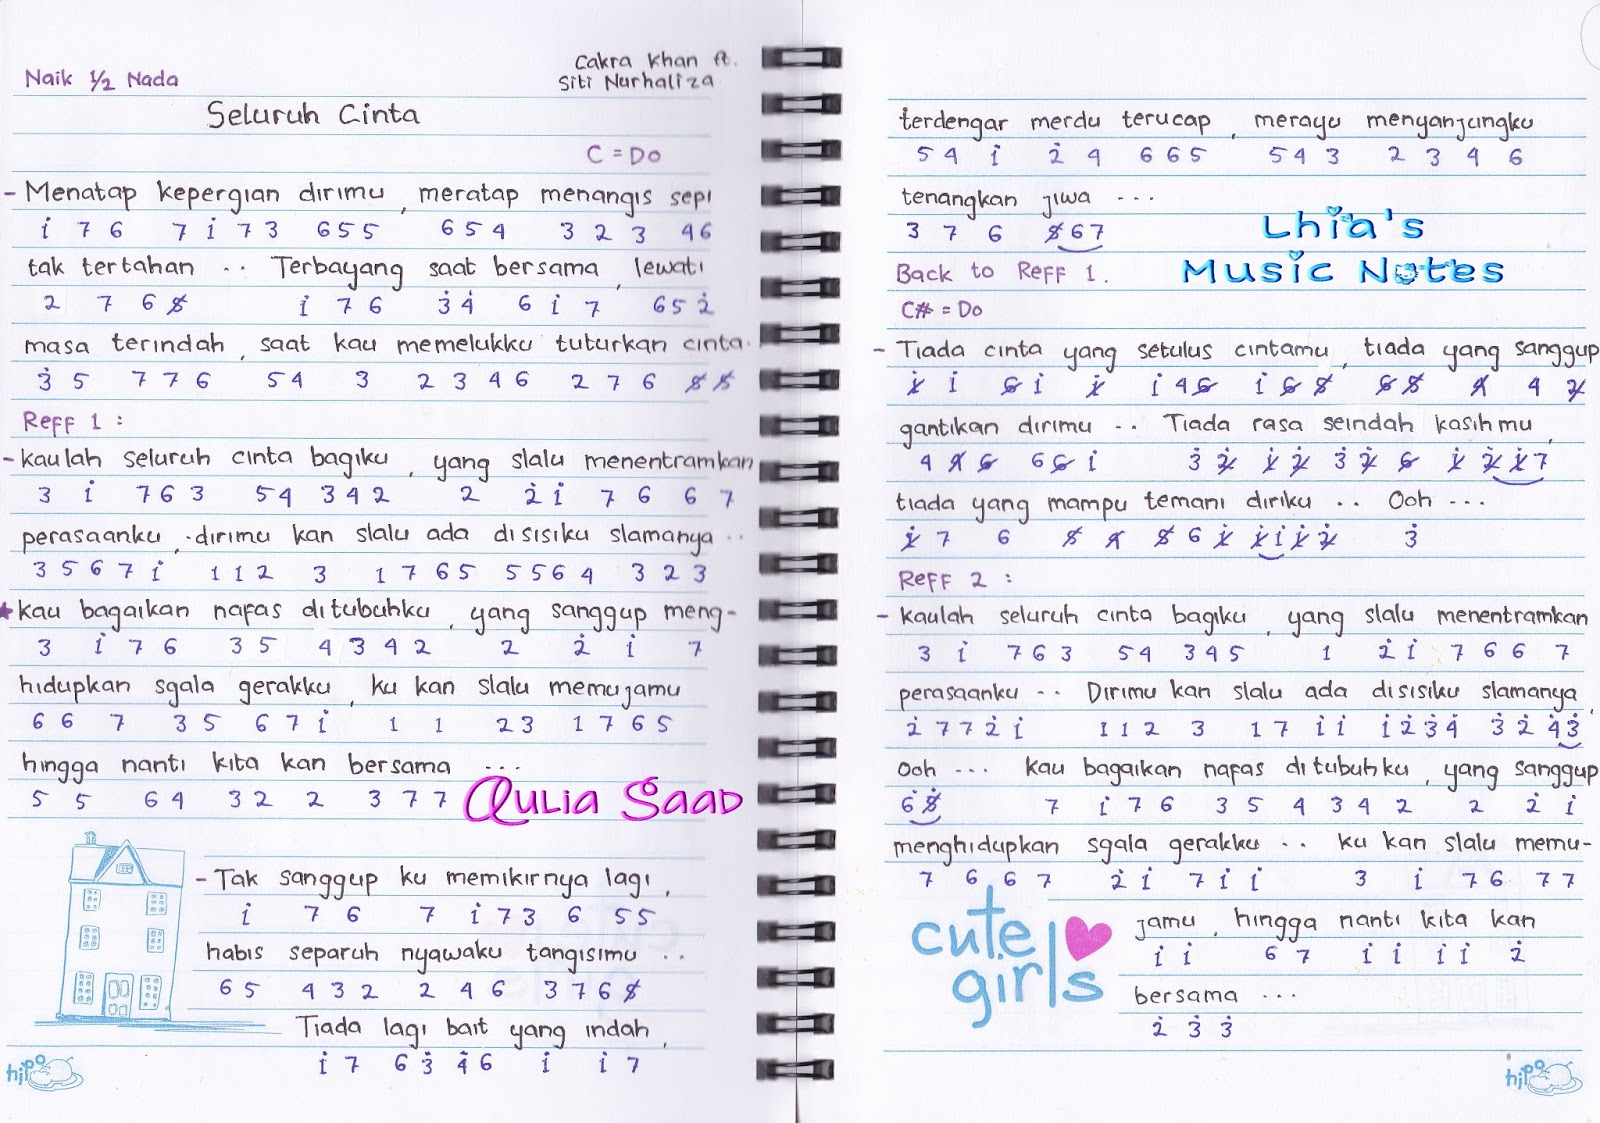 Naik 1/2 Nada
Cakra Khan ft.
Siti Nurhaliza
Seluruh Cinta
C = Do
- Menatap kepergian dirimu, meratap menangis sepi
i̇ 7 6 7 i̇ 7 3 6 5 5 6 5 4 3 2 3 4 6
tak tertahan .. Terbayang saat bersama, lewati
2 7 6 5̸ i̇ 7 6 3̇ 4̇ 6 i̇ 7 6 5 2̇
masa terindah, saat kau memelukku tuturkan cinta.
3̇ 5 7 7 6 5 4 3 2 3 4 6 2 7 6 5̸ 5̸
Reff 1 :
- kaulah seluruh cinta bagiku, yang slalu menentramkan
3 i̇ 7 6 3 5 4 3 4 2 2 2̇ i̇ 7 6 6 7
perasaanku, dirimu kan slalu ada disisiku slamanya ..
3 5 6 7 i̇ 1 1 2 3 1 7 6 5 5 5 6 4 3 2 3
★ kau bagaikan nafas ditubuhku, yang sanggup meng-
3 i̇ 7 6 3 5 4 3 4 2 2 2̇ i̇ 7
hidupkan sgala gerakku, ku kan slalu memujamu
6 6 7 3 5 6 7 i̇ 1 1 2 3 1 7 6 5
hingga nanti kita kan bersama ...
5 5 6 4 3 2 2 3 7 7
Aulia Saad
- Tak sanggup ku memikirnya lagi,
i̇ 7 6 7 i̇ 7 3 6 5 5
habis separuh nyawaku tangisimu ..
6 5 4 3 2 2 4 6 3 7 6 5̸
Tiada lagi bait yang indah,
i̇ 7 6 3̇ 4̇ 6 i̇ i̇ 7
hipo
terdengar merdu terucap, merayu menyanjungku
5 4 i̇ 2̇ 4 6 6 5 5 4 3 2 3 4 6
tenangkan jiwa ...
3 7 6 5̸ 6 7
Lhia's
Music Notes
Back to Reff 1.
C# = Do
- Tiada cinta yang setulus cintamu, tiada yang sanggup
gantikan dirimu .. Tiada rasa seindah kasihmu,
tiada yang mampu temani diriku .. Ooh ...
Reff 2 :
- kaulah seluruh cinta bagiku, yang slalu menentramkan
3 i̇ 7 6 3 5 4 3 4 5 1 2̇ i̇ 7 6 6 7
perasaanku .. Dirimu kan slalu ada disisiku slamanya,
2̇ 7 7 2̇ i̇ 1 1 2 3 1 7 i̇ i̇ i̇ 2̇ 3̇ 4̇ 3̇ 2̇ 4̇ 3̇
Ooh ... kau bagaikan nafas ditubuhku, yang sanggup
6̇ 5̸̇ 7 i̇ 7 6 3 5 4 3 4 2 2 2̇ i̇
menghidupkan sgala gerakku .. ku kan slalu memu-
7 6 6 7 2̇ i̇ 7 i̇ i̇ 3 i̇ 7 6 7 7
jamu, hingga nanti kita kan
i̇ i̇ 6 7 i̇ i̇ i̇ i̇ 2̇
bersama ...
2̇ 3̇ 3̇
cute
girls
hipo